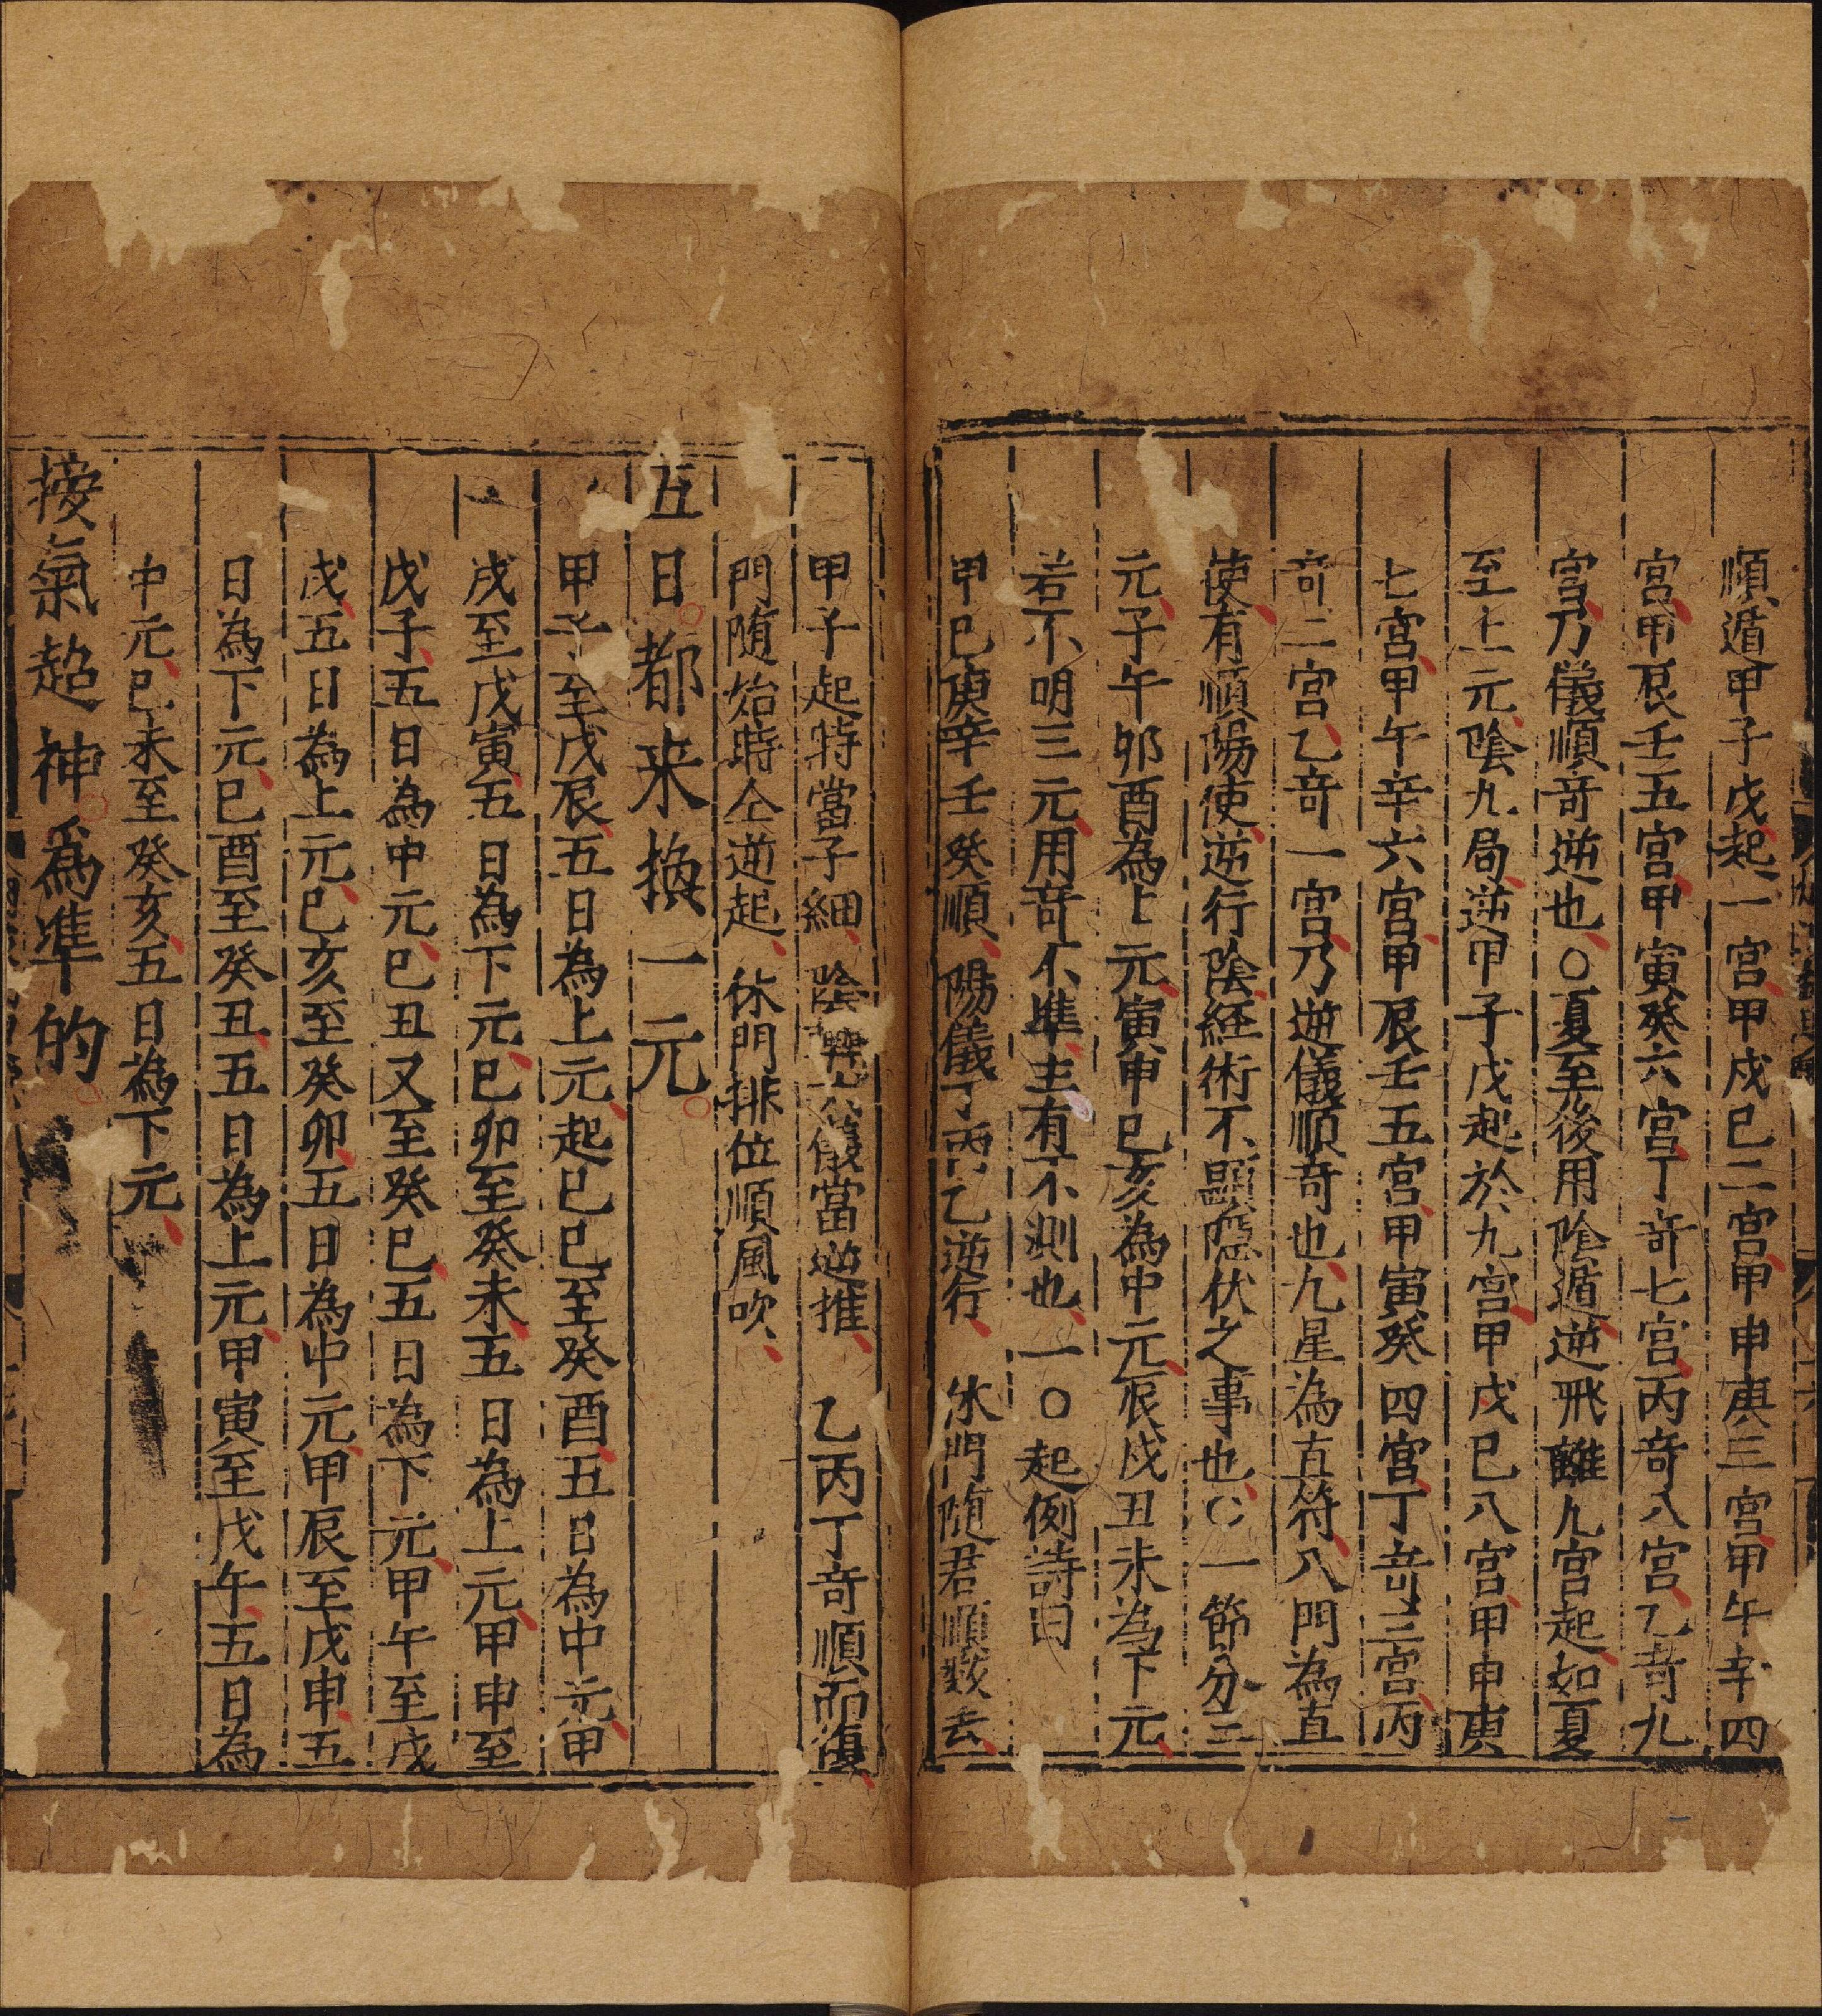 順遁甲子戊起一宫甲戍己二宫甲申庚三宫甲午辛四
宫甲辰壬五宫甲寅癸六宫丁奇七宫丙奇八宫乙奇九
宫乃儀順奇逆也〇夏至後用陰遁逆飛離九宫起如夏
至上元陰九局逆甲子戊起於九宫甲戍己八宫甲申庚
七宫甲午辛六宫甲辰壬五宫甲寅癸四宫丁奇三宫丙
奇二宫乙奇一宫乃逆儀順奇也九星為直符八門為直
使有順陽使逆行陰經術不顯隱伏之事也〇一節分三
元子午卯酉為上元寅申巳亥為中元辰戍丑未為下元
若不明三元用奇不準主有不測也一〇起例詩曰
甲己庚辛壬癸順陽儀丁丙乙逆行休門随君順数去
甲子起時當子細陰儀當逆推乙丙丁奇順而復
門随始時仝逆起休門排位順風吹
五日都来換一元
甲子至戊辰五日為上元起己巳至癸酉五日為中元甲
戍至戊寅五日為下元己卯至癸未五日為上元甲申至
戊子五日為中元己丑又至癸巳五日為下元甲午至戊
戍五日為上元己亥至癸卯五日為中元甲辰至戊申五
日為下元己酉至癸丑五日為上元甲寅至戊午五日為
中元己未至癸亥五日為下元
接氣超神為準的